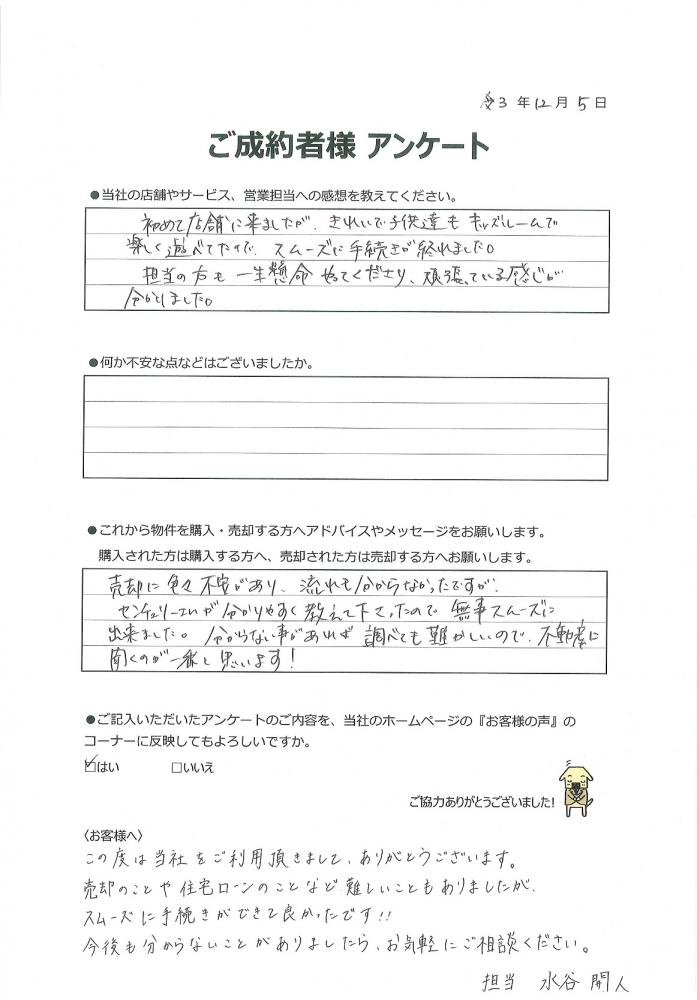 3年12月5日
ご成約者様 アンケート
●当社の店舗やサービス、営業担当への感想を教えてください。
初めて店舗に来ましたが、きれいで子供達も キッズルームで
楽しく遊べてたので、スムーズに手続きが終れました。
担当の方も 一生懸命 やってくださり、頑張っている感じが
分かりました。
●何か不安な点などはございましたか。
●これから物件を購入・売却する方へアドバイスやメッセージをお願いします。
購入された方は購入する方へ、売却された方は売却する方へお願いします。
売却に色々不安があり、流れも分からなかったですが、
センチュリー21が分かりやすく教えて下さったので 無事スムーズに
出来ました。分からない事があれば 調べても難かしいので、不動産に
聞くのが一番と思います!
●ご記入いただいたアンケートのご内容を、当社のホームページの『お客様の声』の
コーナーに反映してもよろしいですか。
☑はい □いいえ
ご協力ありがとうございました!
〈お客様へ〉
この度は当社をご利用頂きまして、ありがとうございます。
売却のことや住宅ローンのことなど難しいこともありましたが、
スムーズに手続きができて良かったです!!
今後も分からないことがありましたら、お気軽にご相談ください。
担当 水谷 開人